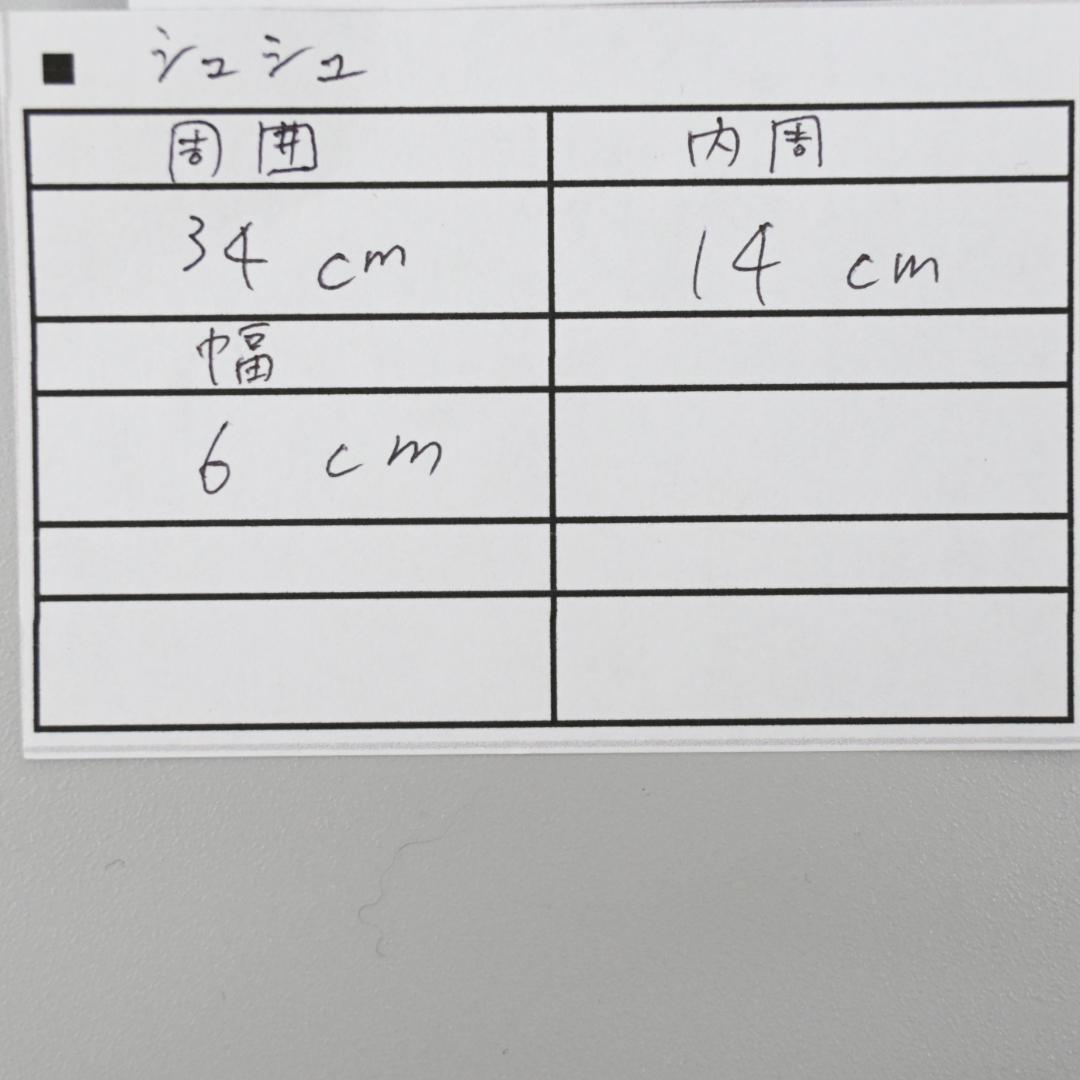 ■ シュシュ
周囲 内周
34 cm 14 cm
幅
6 cm